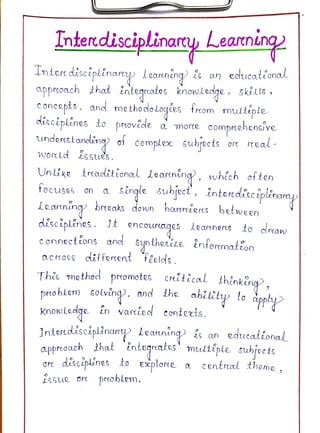 Interdisciplinary Learning
Interdisciplinary Learning is an educational
approach that integrates knowledge, skills,
concepts, and methodologies from multiple
disciplines to provide a more comprehensive
understanding of complex subjects or real-
world issues.
Unlike traditional learning, which often
focuses on a single subject, interdisciplinary
Learning breaks down barriers between
disciplines. It encourages learners to draw
connections and synthesize information
across different fields.
This method promotes critical thinking,
problem solving, and the ability to apply
knowledge in varied contexts.
Interdisciplinary Learning is an educational
approach that integrates multiple subjects
or disciplines to explore a central theme,
issue or problem.